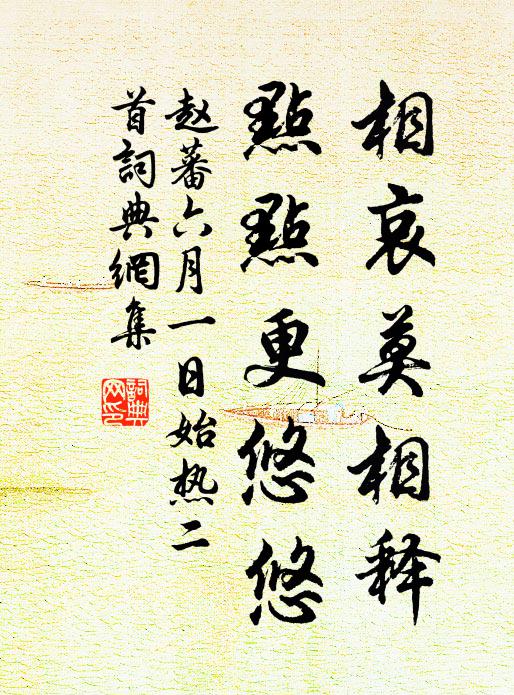 相哀莫相释
點點更悠悠
赵蕃六月一日始热二
首詞典網集
詞典网印